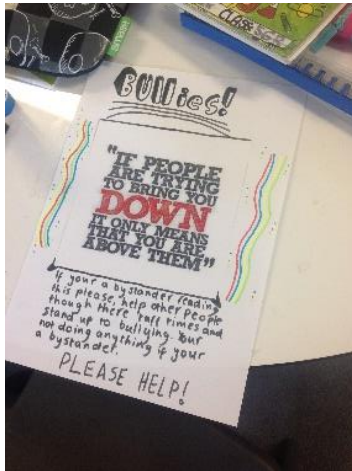 BUllies!
"IF PEOPLE
ARE TRYING
TO BRING YOU
DOWN
IT ONLY MEANS
THAT YOU ARE
ABOVE THEM"
If your a bystander reading
this please, help other people
though there tuff times and
stand up to bullying. Your
not doing anything if your
a bystander.
PLEASE HELP!
CLASS